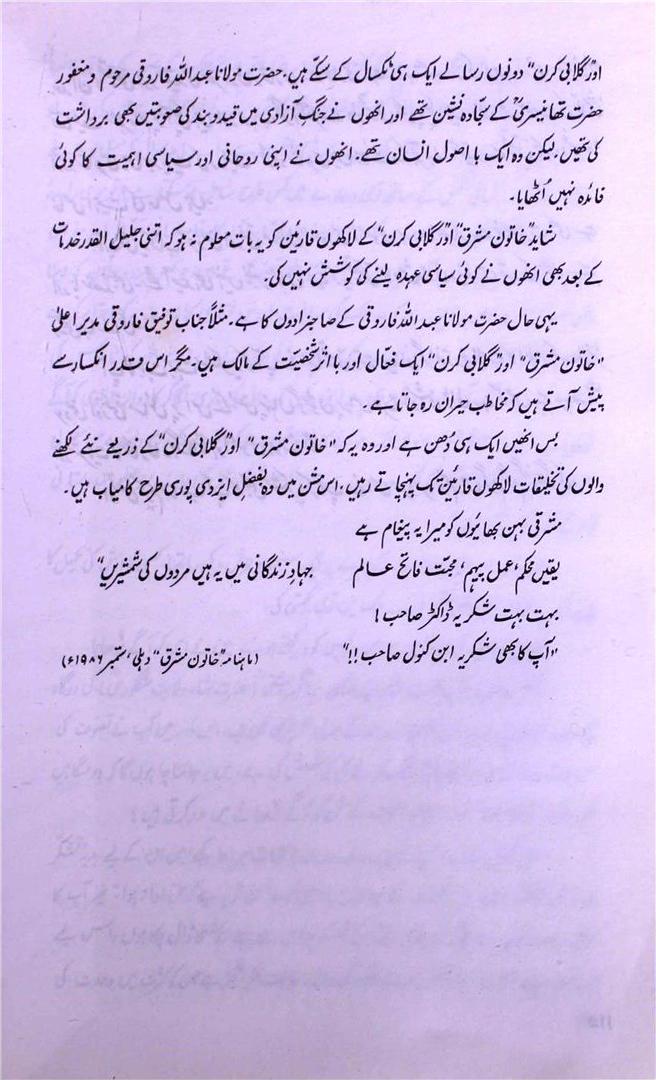 اور ”گلابی کرن“ دونوں رسالے ایک ہی ٹکسال کے سکّے ہیں۔ حضرت مولانا عبداللہ فاروقی مرحوم و مغفور
حضرت تھانیسریؒ کے سجّادہ نشین تھے اور انھوں نے جنگِ آزادی میں قید و بند کی صعوبتیں بھی برداشت
کی تھیں، لیکن وہ ایک با اصول انسان تھے۔ انھوں نے اپنی روحانی اور سیاسی اہمیت کا کوئی
فائدہ نہیں اُٹھایا۔
شاید ”خاتون مشرق“ اور ”گلابی کرن“ کے لاکھوں قارئین کو یہ بات معلوم نہ ہو کہ اتنی جلیل القدر خدمات
کے بعد بھی انھوں نے کوئی سیاسی عہدہ لینے کی کوشش نہیں کی۔
یہی حال حضرت مولانا عبداللہ فاروقی کے صاحبزادوں کا ہے۔ مثلاً جناب توفیق فاروقی مدیر اعلیٰ
”خاتون مشرق“ اور ”گلابی کرن“ ایک فعّال اور با اثر شخصیت کے مالک ہیں۔ مگر اس قدر انکسار سے
پیش آتے ہیں کہ مخاطب حیران رہ جاتا ہے۔
بس انھیں ایک ہی دُھن ہے اور وہ یہ کہ ”خاتون مشرق“ اور ”گلابی کرن“ کے ذریعے نئے لکھنے
والوں کی تخلیقات لاکھوں قارئین تک پہنچاتے رہیں۔ اس مشن میں وہ بفضلِ ایزدی پوری طرح کامیاب ہیں۔
مشرقی بہن بھائیوں کو میرا یہ پیغام ہے
یقیں محکم، عمل پیہم، محبّت فاتح عالم جہادِ زندگانی میں یہ ہیں مردوں کی شمشیریں“
بہت بہت شکریہ ڈاکٹر صاحب!
”آپ کا بھی شکریہ ابن کنول صاحب!!“ (ماہنامہ ”خاتون مشرق“ دہلی، ستمبر ۱۹۸۶ء)